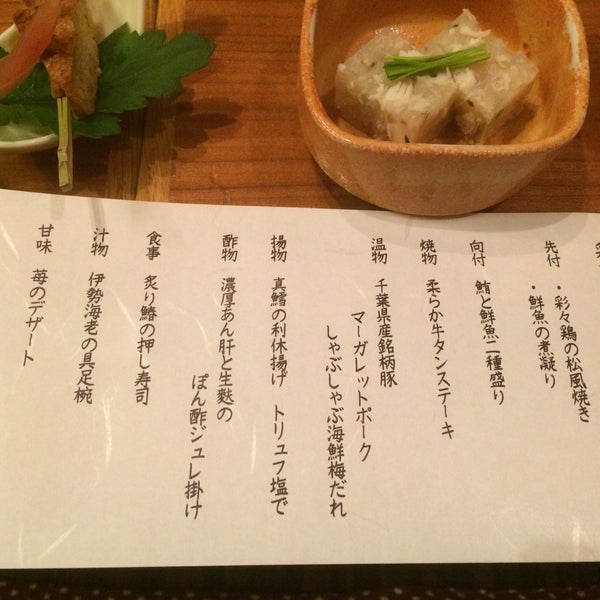 先付 ・彩々鶏の松風焼き
・鮮魚の煮凝り
向付 鮪と鮮魚二種盛り
焼物 柔らか牛タンステーキ
温物 千葉県産銘柄豚
マーガレットポーク
しゃぶしゃぶ海鮮梅だれ
揚物 真鱈の利休揚げ トリュフ塩で
酢物 濃厚あん肝と生麩の
ぽん酢ジュレ掛け
食事 炙り鰆の押し寿司
汁物 伊勢海老の具足椀
甘味 苺のデザート